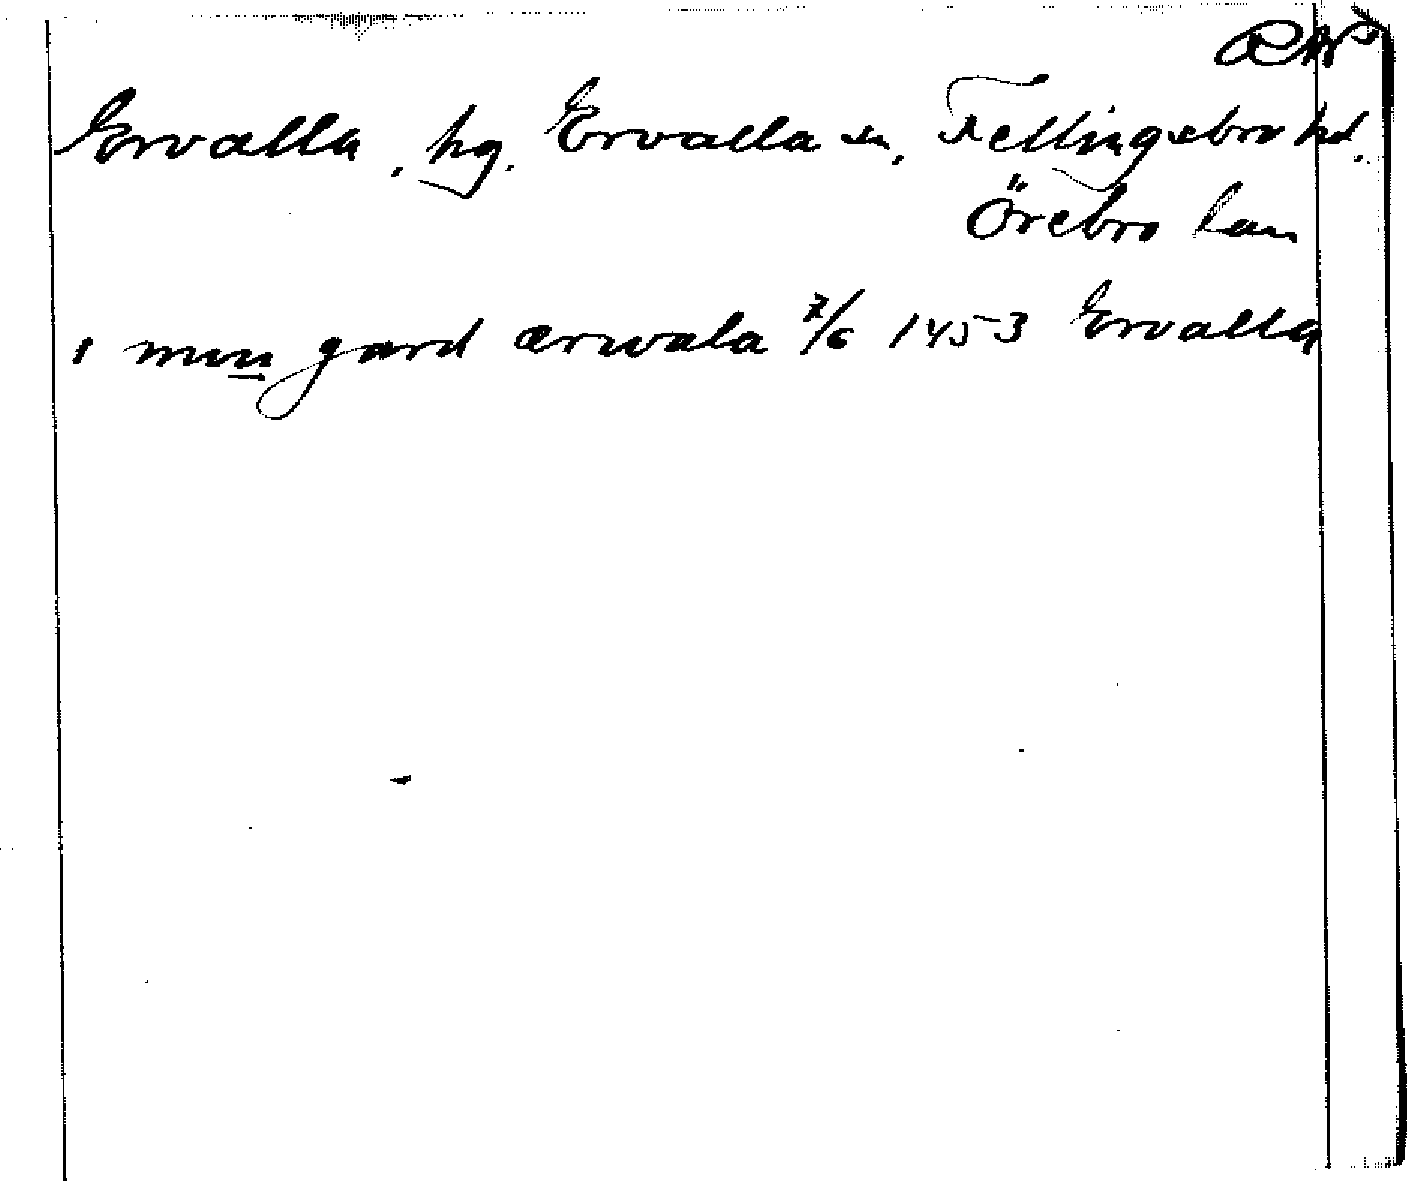 Ervalla, hg. Ervalla sn, Fellingsbro hd.
Örebro lan
i minn gard ærwala 7/6 1453 Ervalla